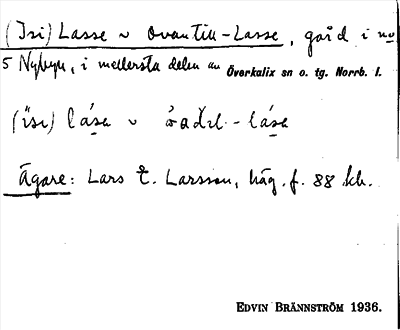 (Isi) Lasse ~ Ovantill-Lasse, gård i no
5 Nybyn, i mellersta delen av Överkalix sn o. tg. Norrb. l.
(ɪsɪ) lása ~
Ägare: Lars E. Larsson, häg. f. 88 kb.
EDVIN BRÄNNSTRÖM 1936.